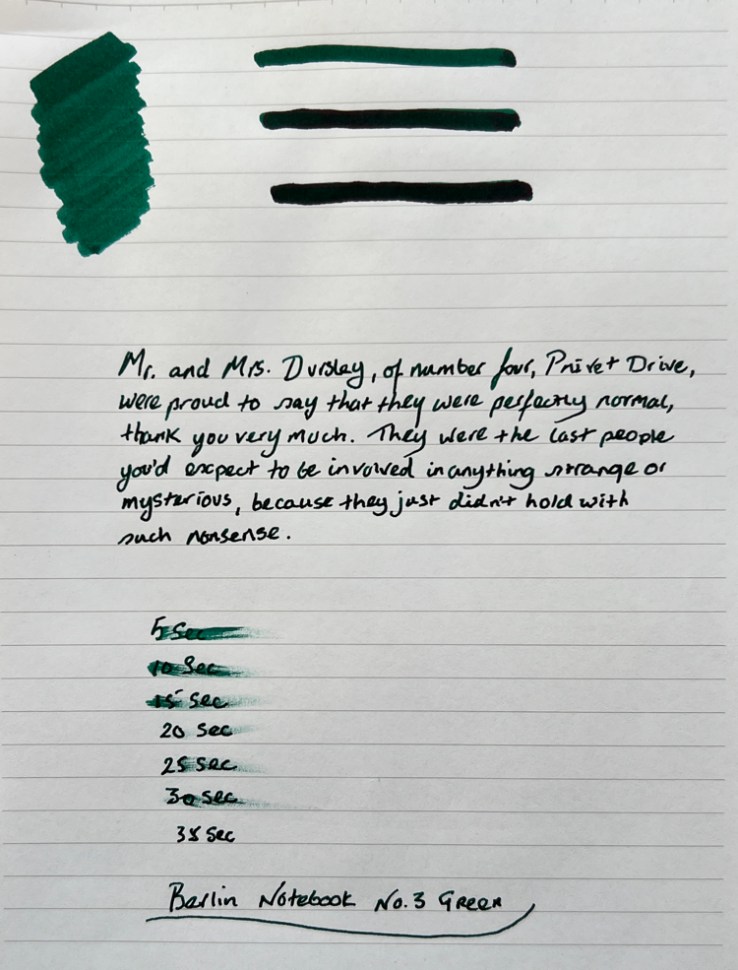 Mr. and Mrs. Dursley, of number four, Privet Drive,
were proud to say that they were perfectly normal,
thank you very much. They were the last people
you'd expect to be involved in anything strange or
mysterious, because they just didn't hold with
such nonsense.
5 Sec
10 Sec
15 Sec
20 Sec
25 Sec
30 Sec
35 Sec
Berlin Notebook No.3 Green